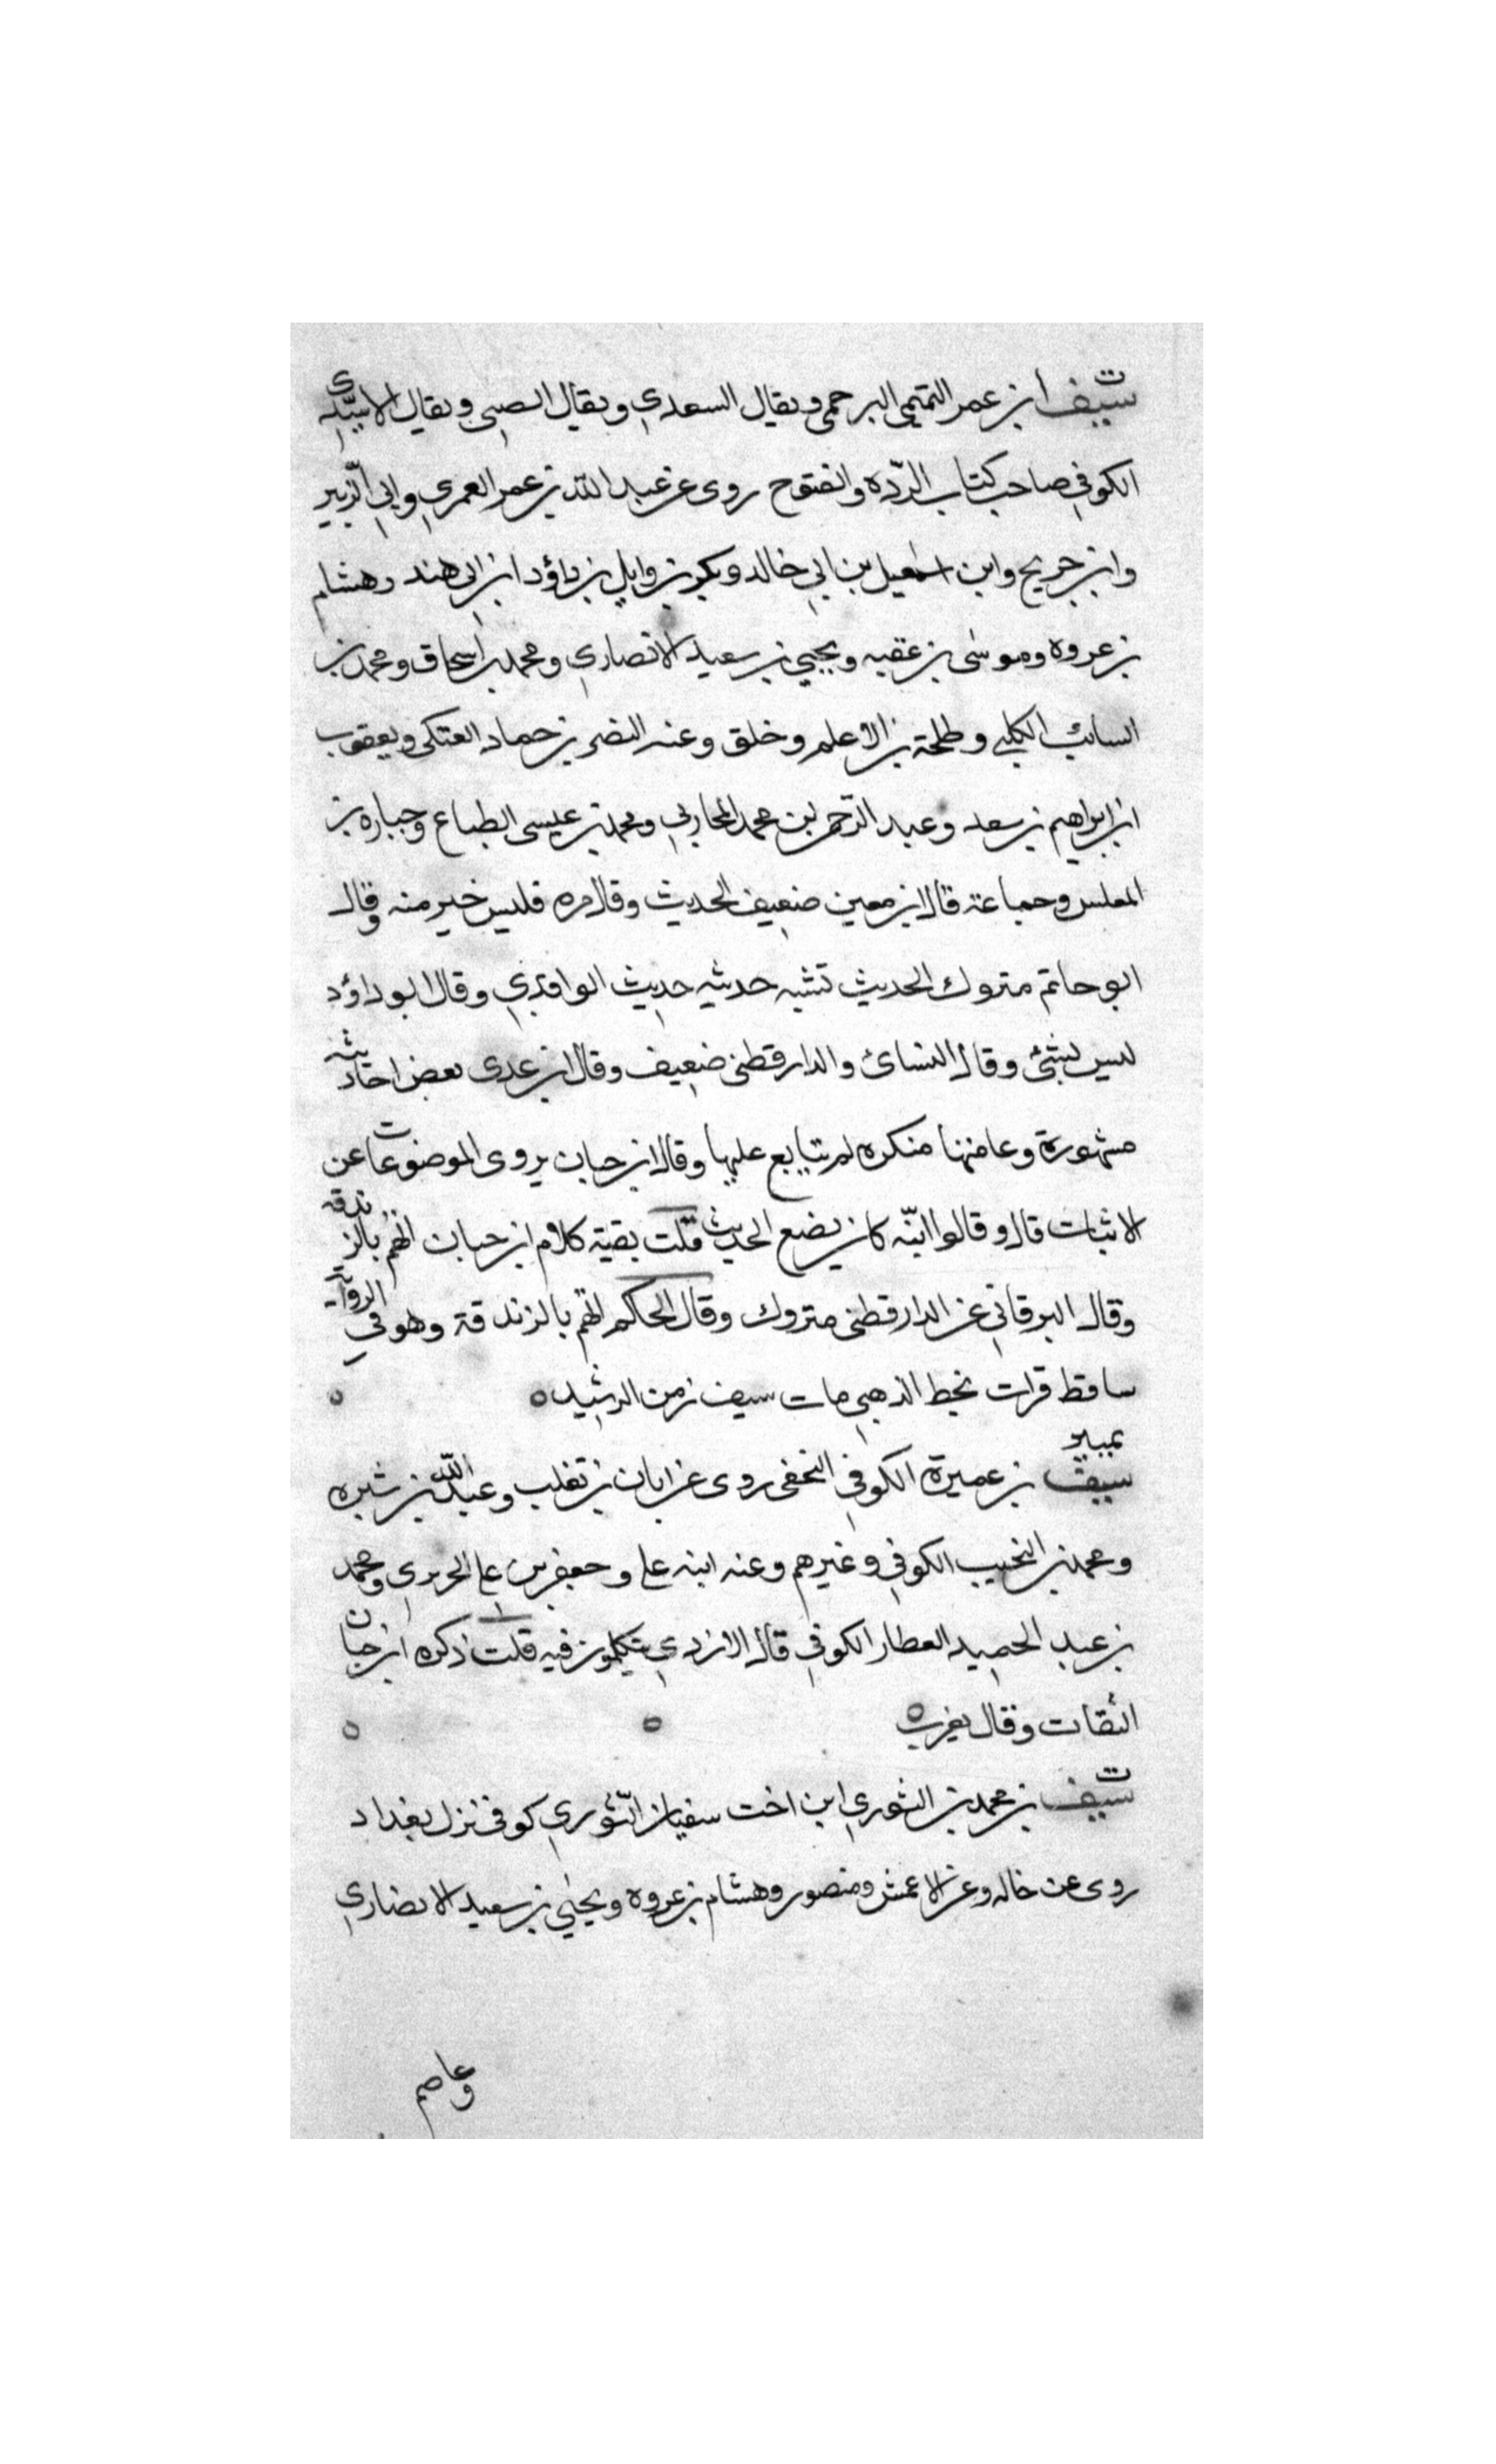 ت
سيف ابن عمر التميمي البرجمي ويقال السعدي ويقال الضبي ويقال الاسيدي
الكوفي صاحب كتاب الردّه والفتوح روى عن عبد الله بن عمر العمري وابي الزبير
وابن جريج وابن اسمعيل بن ابي خالد وبكر بن وايل بن داؤد ابن ابي هند وهشام
بن عروه وموسى بن عقبه ويحيي بن سعيد الانصاري ومحمد بن اسحاق ومحمد بن
السايب الكلبي وطلحة بن الاعلم وخلق وعنه النضر بن حماد العتكى ويعقوب
ابن ابراهيم بن سعد وعبد الرحمن بن محمد المحاربي ومحمد بن عيسى الطباع وجباره بن
المغلس وجماعة قال ابن معين ضعيف الحديث وقال مره فليس خير منه وقال
ابو حاتم متروك الحديث تشبه حديثه حديث الواقدي وقال ابو داؤد
ليس بشئ وقال النسائ والدارقطنى ضعيف وقال ابن عدى بعض احاديثه
مشهورة وعامتها منكره لم يتابع عليها وقال ابن حبان يروى الموضوعات عن
الاثبات قال وقالوا انّه كان يضع الحديث قلت بقية كلام ابن حبان اتهم بالزندقه
وقال البرقاني عن الدارقطنى متروك وقال الحاكم اتهم بالزندقة وهو في الرواية
ساقط قرات بخط الذهبي مات سيف زمن الرشيد ه ه
تمييز
سيف بن عميرة الكوفي النخعى روى عن ابان بن تغلب وعبد الله بن شبره
ومحمد بن النخيب الكوفي وغيرهم وعنه ابنه على وجعفر بن على الحريرى ومحمد
بن عبد الحميد العطار الكوفي قال الازدي يتكلمون فيه قلت ذكره ابن حبان
الثقات وقال يغرب ه ه ه
ت
سيف بن محمد بن الثوري ابن اخت سفيان الثّوري كوفى نزل بغداد
روى عن خاله وعن الاعمش ومنصور وهشام بن عروه ويحيى بن سعيد الانصاري
وعاصم